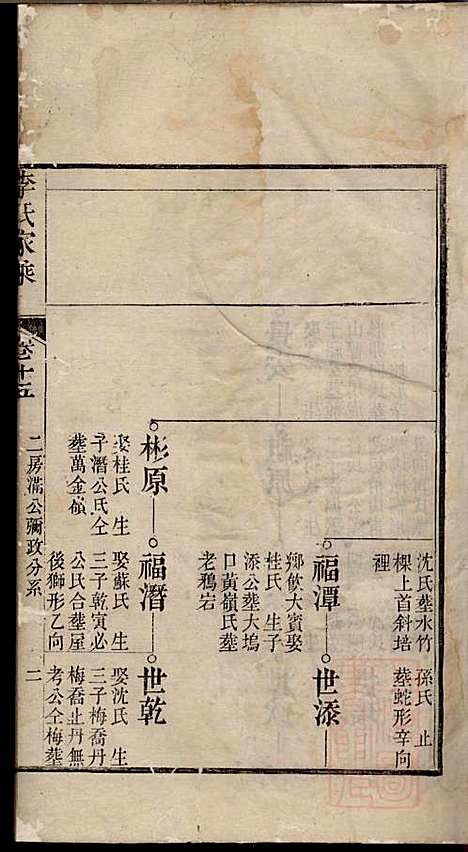 沈氏塟水竹
樑上首斜培
裡
孫氏 止
塟蛇形辛向
福潭
世添
鄉飲大賓娶
桂氏 生子
添公塟大塢
口黃嶺氏塟
老鴉岩
彬原
福潛
世乾
娶桂氏 生
子潛公氏仝
塟萬金嶺
娶蘇氏 生
三子乾寅必
公民合塟屋
後獅形乙向
娶沈氏 生
三子梅喬丹
梅喬止丹無
考公仝梅塟
李氏家乘
卷十五
二房滿公彌政分系
二